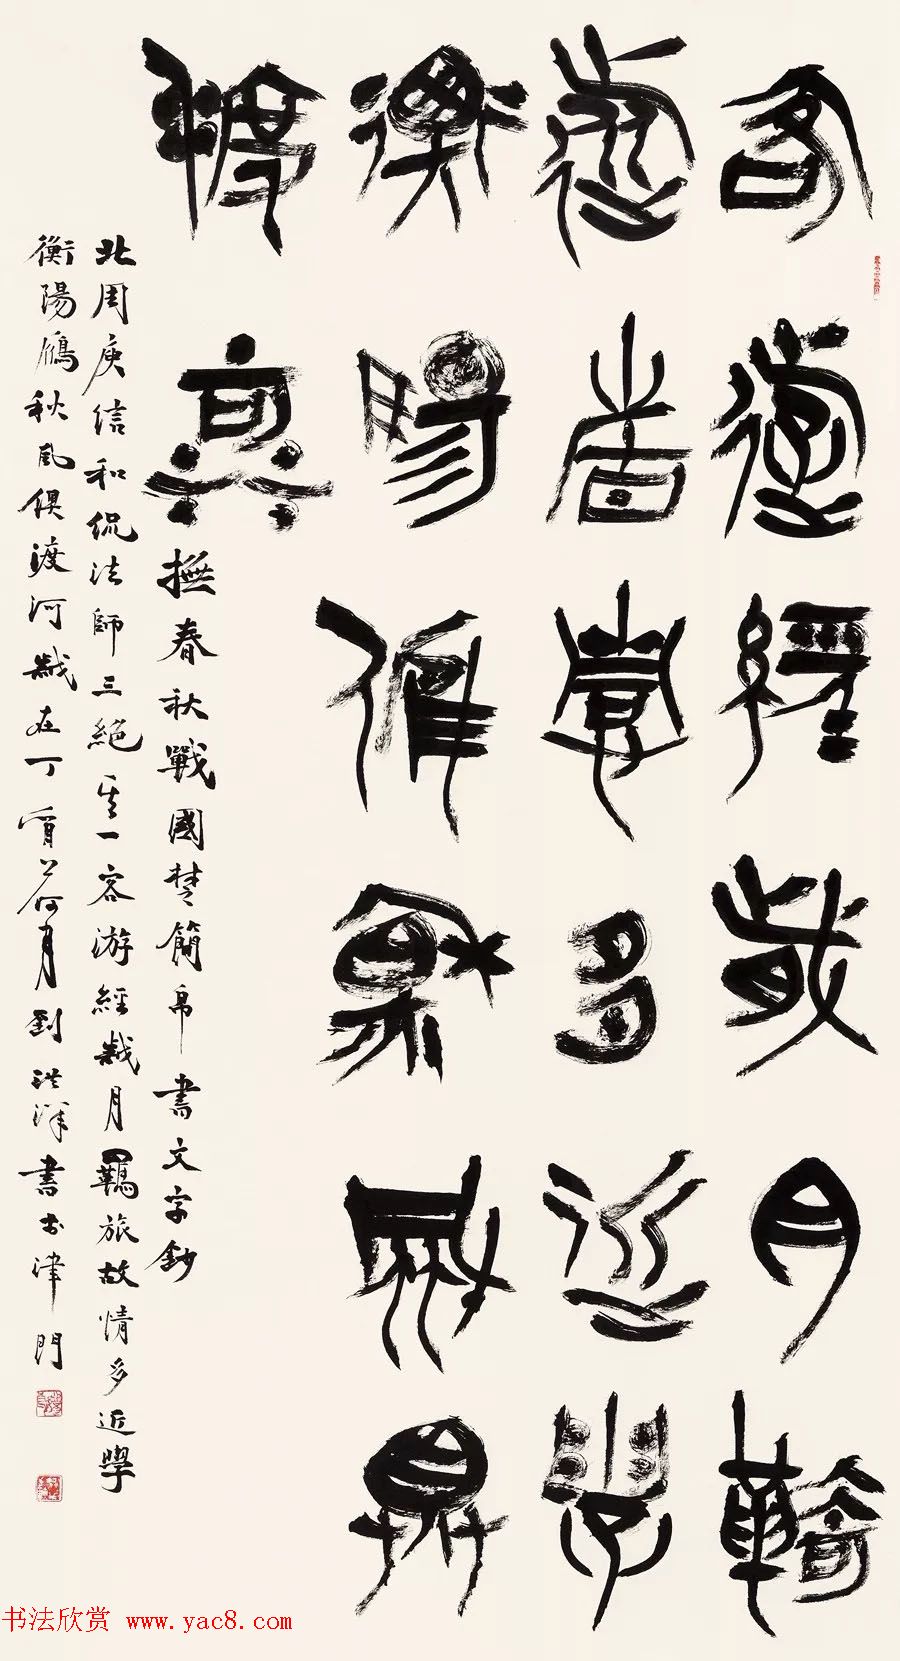 客遊經歲月羈
旅故情多近學
衡陽雁秋風俱
渡河
撫春秋戰國楚簡帛書文字鈔
北周庾信和侃法師三絕其一客游經歲月羈旅故情多近學
衡陽鴈秋風俱渡河歲在丁酉之荷月劉洪洋書於津門
书法欣赏 www.yac8.com